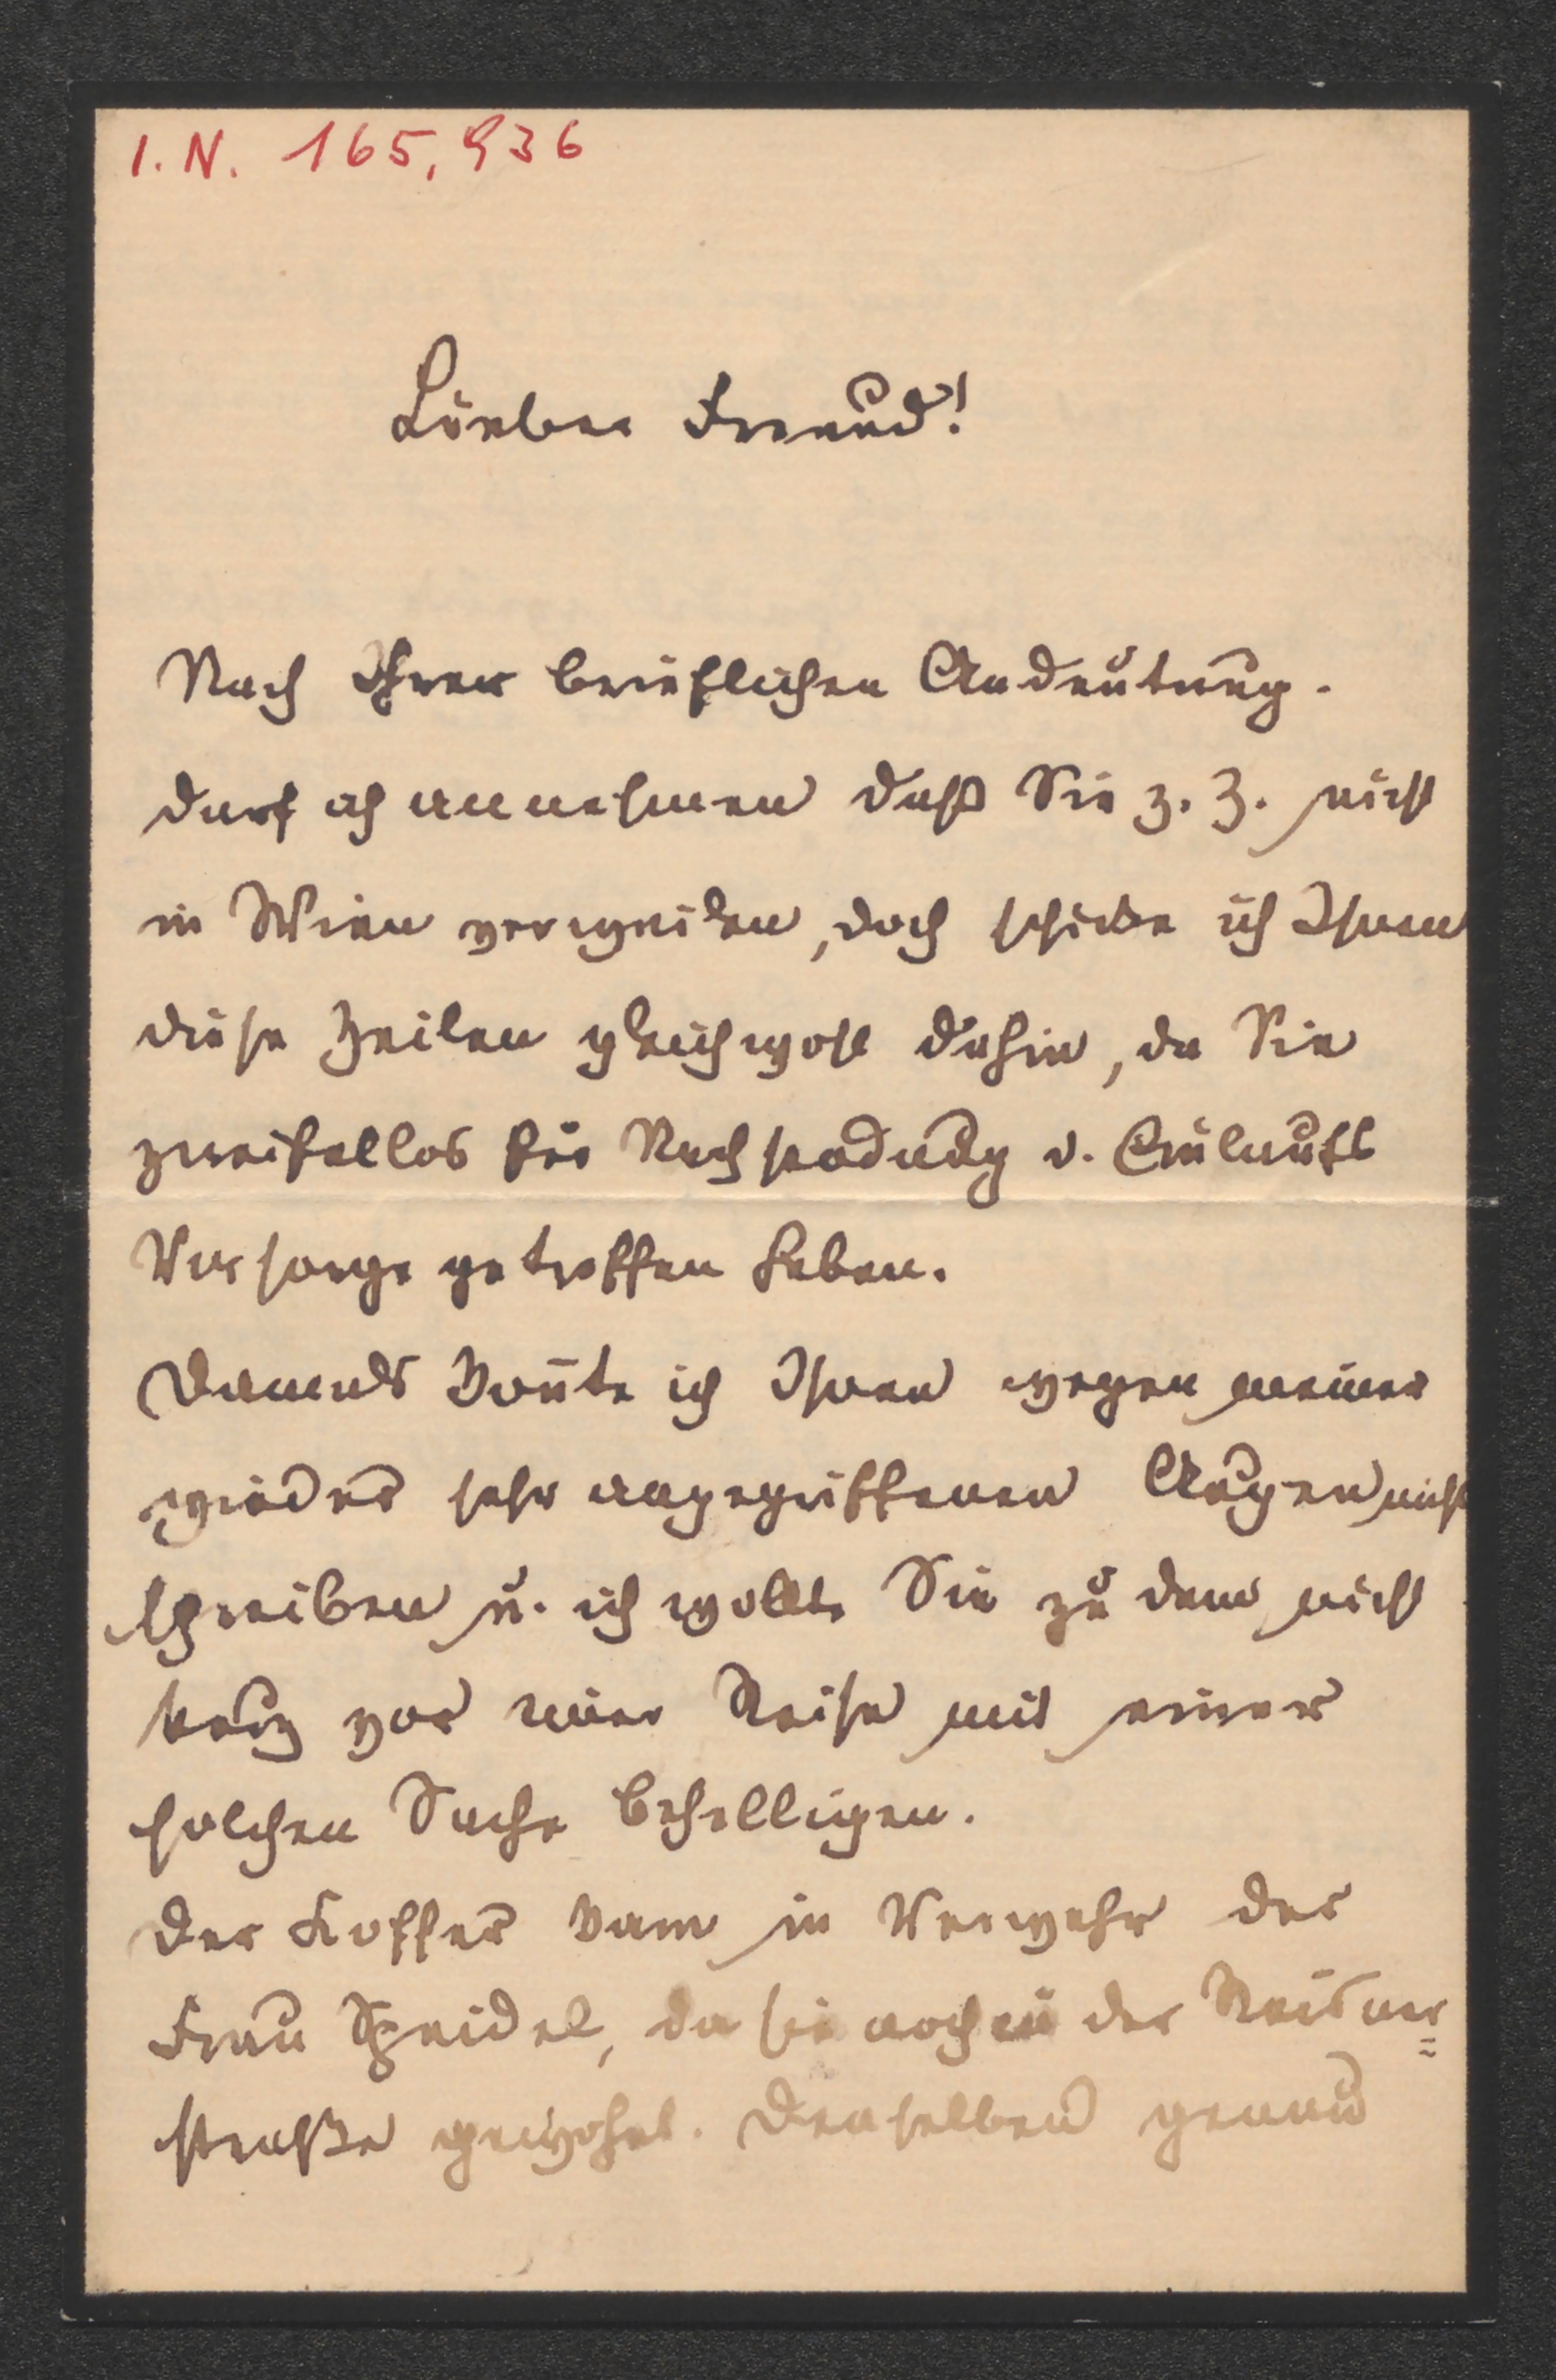 I.N. 165,936
Lieber Freund!
Nach Ihrer brieflichen Andeutung.
darf ich annehmen daß Sie z. Z. nicht
in Wien verweilen, doch schicke ich Ihnen
diese Zeilen gleichwohl dahin, da Sie
zweifellos für Nachsendung d. Einlaufs
Vorsorge getroffen haben.
Damals konnte ich Ihnen wegen meiner
wieder sehr angegriffenen Augen nicht
schreiben u. ich wollte Sie zu dem nicht
kurz vor einer Reise mit einer
solchen Sache behelligen.
Der Koffer kam in Verwahr der
Frau Speidel, da sie noch in der Reisner=
straße gewohnt. Denselben genau